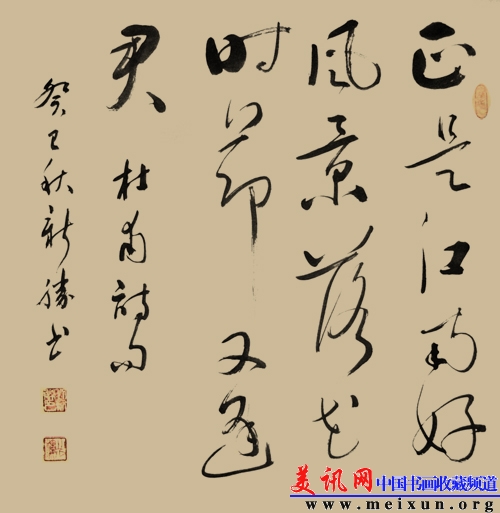 正是江南好
风景落花
时節又逢
君 杜甫詩句
癸巳秋新勝书
美讯网 中国书画收藏频道
www.meixun.org